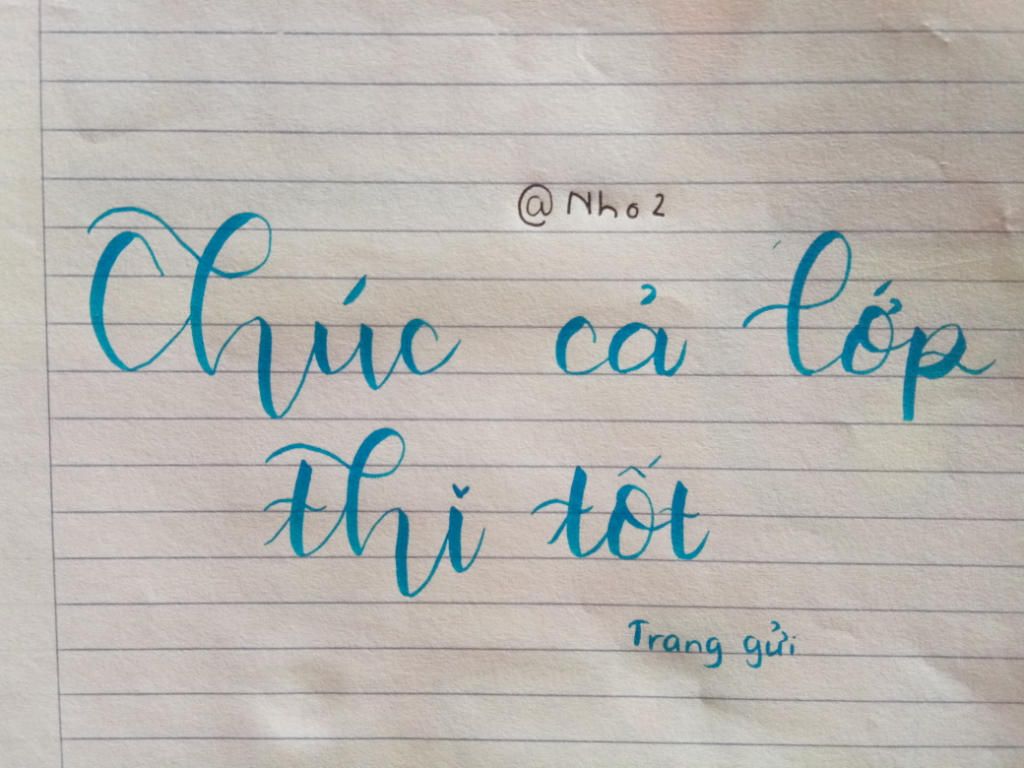 @Nho2
Chúc cả lớp
thi tốt
Trang gửi